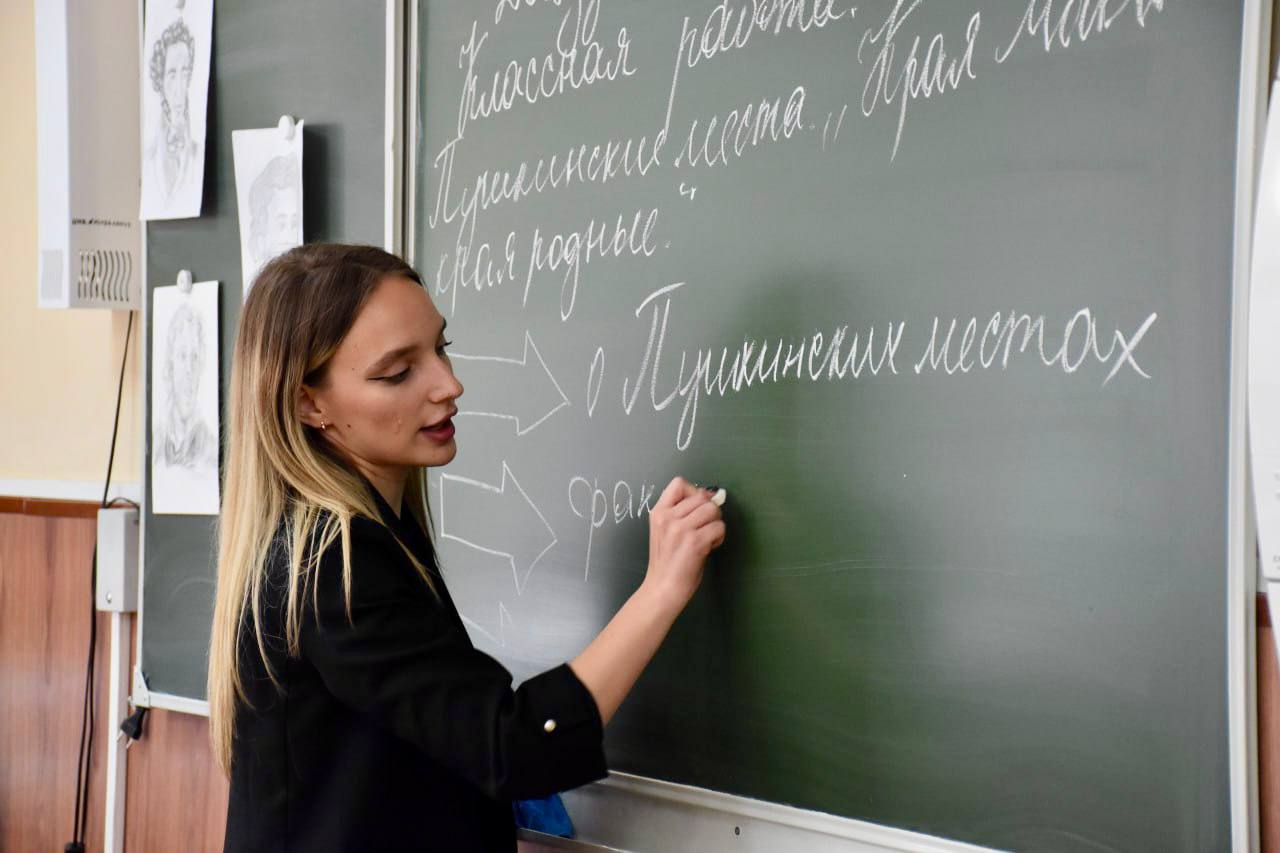 Классная работа.
Пушкинские места. „Края Мои,
края родные."
о Пушкинских местах
фак